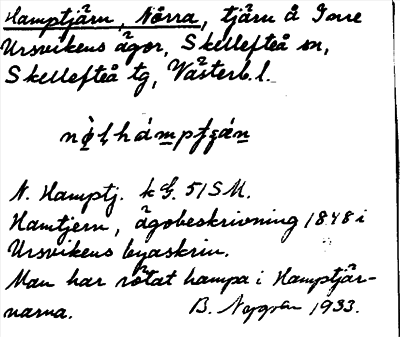 Hamptjärn, Norra, tjärn å Yttre
Ursvikens ägor, Skellefteå sn,
Skellefteå tg, Västerb. l.
N. Hamptj. k G. 51 S M.
Hamtjern, ägobeskrivning 1848 i
Ursvikens byaskrin.
Man har rötat hampa i Hamptjär-
narna. B. 1933.